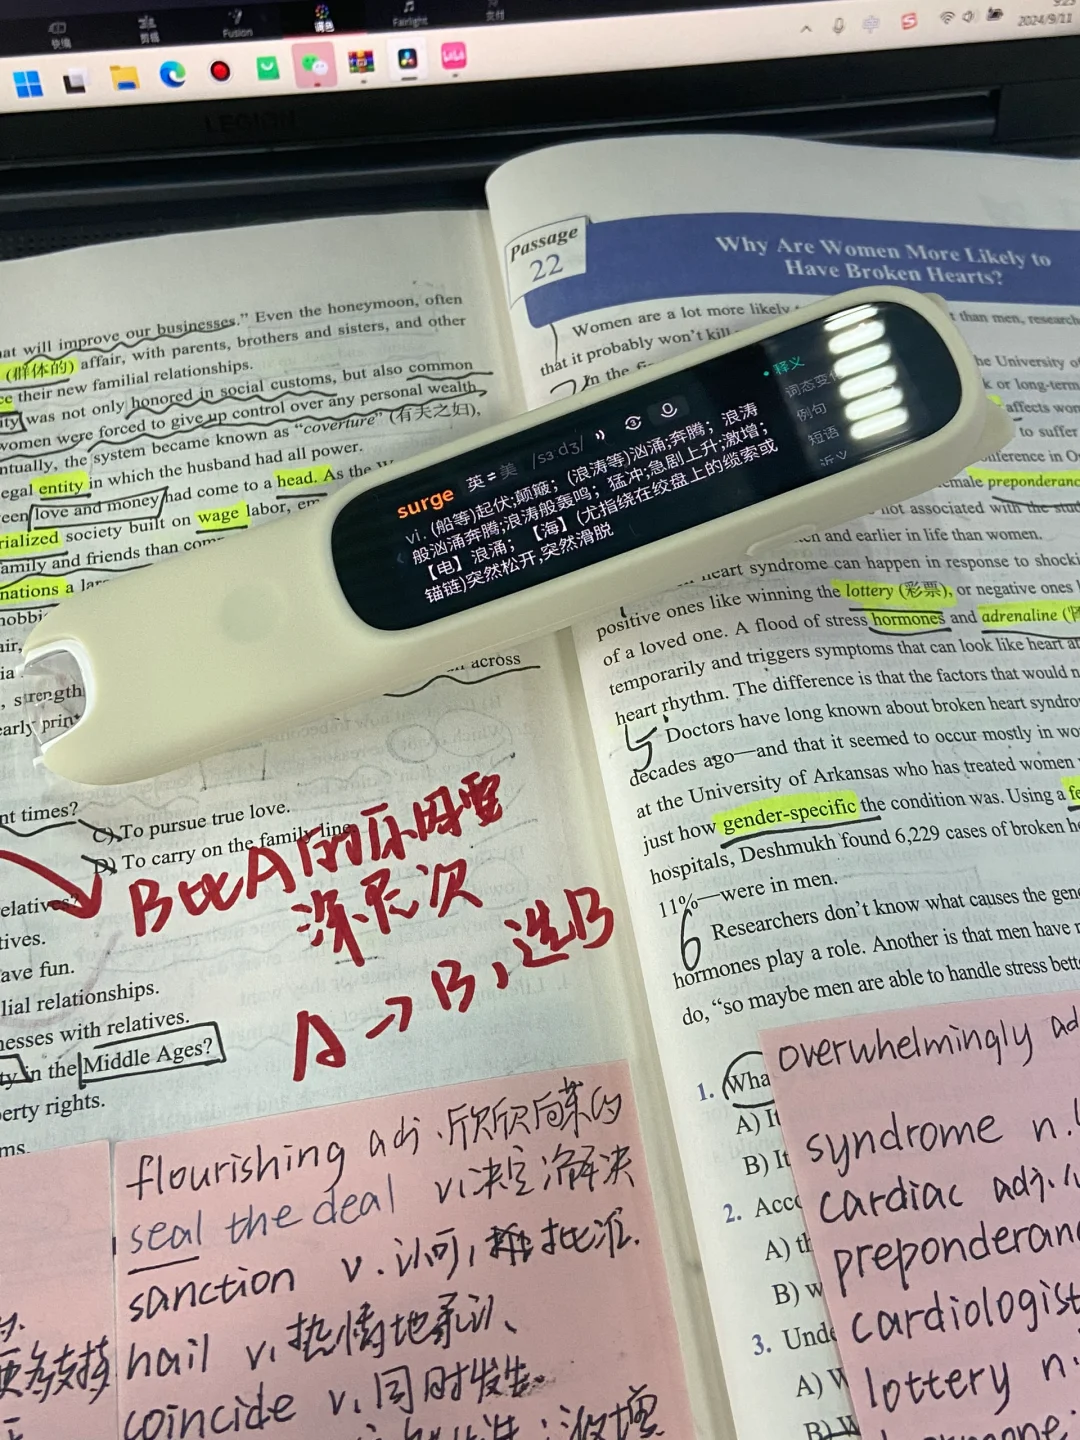 快编
剪辑
Fusion
调色
Fairlight
2024/9/11
LEGION
Passage
22
Why Are Women More Likely to
Have Broken Hearts?
at will improve our businesses.” Even the honeymoon, often
(群体的) affair, with parents, brothers and sisters, and other
their new familial relationships.
was not only honored in social customs, but also common
women were forced to give up control over any personal wealth
the system became known as “coverture” (有夫之妇),
egal entity in which the husband had all power.
love and money had come to a head. As the
society built on wage labor,
amily and friends than
nations a
across
strength
early
nt times?
C) To pursue true love.
D) To carry on the family line.
elatives?
tives.
ave fun.
lial relationships.
nesses with relatives.
in the Middle Ages?
erty rights.
ms.
surge 英 美
vi. (船等)起伏;颠簸; (浪涛等)汹涌;奔腾; 浪涛
般汹涌奔腾;浪涛般轰鸣; 猛冲;急剧上升;激增;
【电】浪涌; 【海】(尤指绕在绞盘上的缆索或
锚链)突然松开,突然滑脱
释义
词态变
例句
短语
Women are a lot more likely
than men, research
that it probably won’t kill
In the
he University of
or long-term
affects
to suffer
male preponderanc
not associated with the
and earlier in life than women.
heart syndrome can happen in response to
positive ones like winning the lottery (彩票), or negative ones
of a loved one. A flood of stress hormones and adrenaline
temporarily and triggers symptoms that can look like heart
heart rhythm. The difference is that the factors that would
5 Doctors have long known about broken heart
decades ago—and that it seemed to occur mostly in
at the University of Arkansas who has treated women
just how gender-specific the condition was. Using a
hospitals, Deshmukh found 6,229 cases of broken
11%—were in men.
6 Researchers don’t know what causes the
hormones play a role. Another is that men have
do, “so maybe men are able to handle stress
B比A的原因要
深层次
A → B, 选B
flourishing adj. 欣欣向荣的
seal the deal v. 决定 解决
sanction v. 认可, 批准.
hail v. 热情地承认、
coincide v. 同时发生.
overwhelmingly ad
syndrome n.
cardiac adj.
preponderan
cardiologist
lottery n.
1. Wha
A) It
B) It
2. Acco
A) th
B) w
3. Unde
A) W
B) W